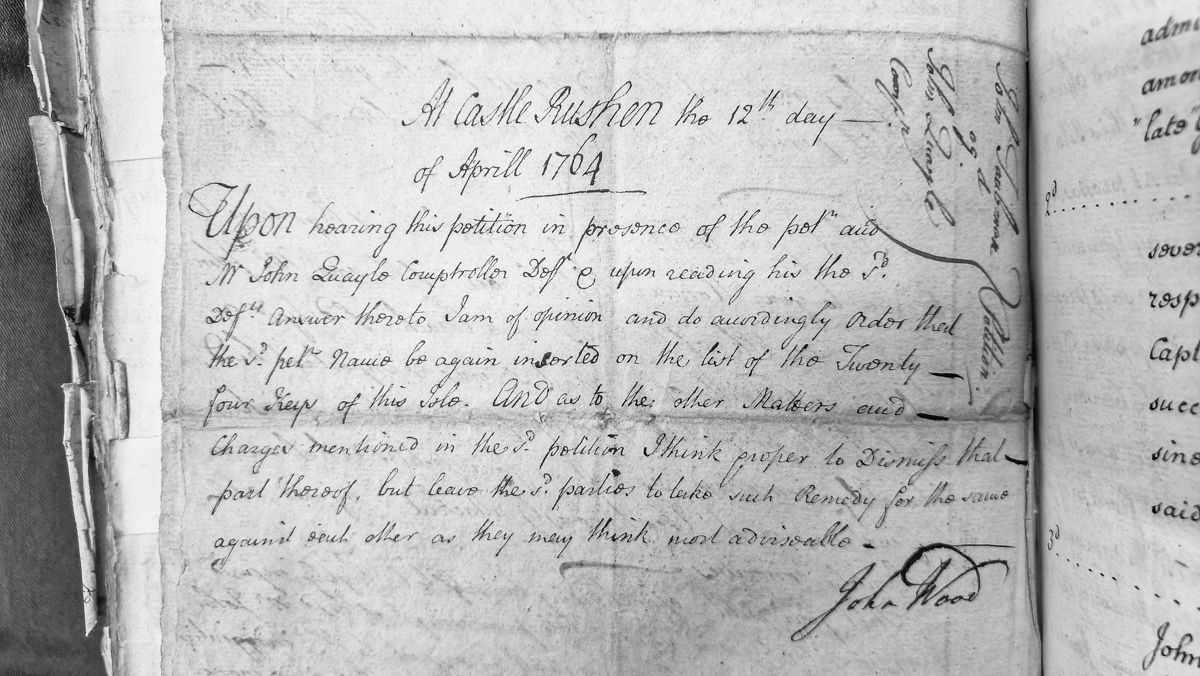 At Castle Rushen the 12th day —
of Aprill 1764
Upon hearing this petition in presence of the petr and
Mr John Quayle Comptroller Deft & upon reading his the sd.
Defts Answer thereto I am of opinion and do accordingly order that
the sd. petrs Name be again inserted on the list of the Twenty —
four Keys of this Isle. And as to the other Matters and —
Charges mentioned in the sd. petition I think proper to Dismiss that —
part thereof, but leave the sd. parties to take such Remedy for the same
against each other as they may think most adviseable -
John Wood
John Quayle
Compr
John Taubman
Petition.
admi
amon
"late
2d
seve
resp
Capt
succ
sinc
said
3d
John